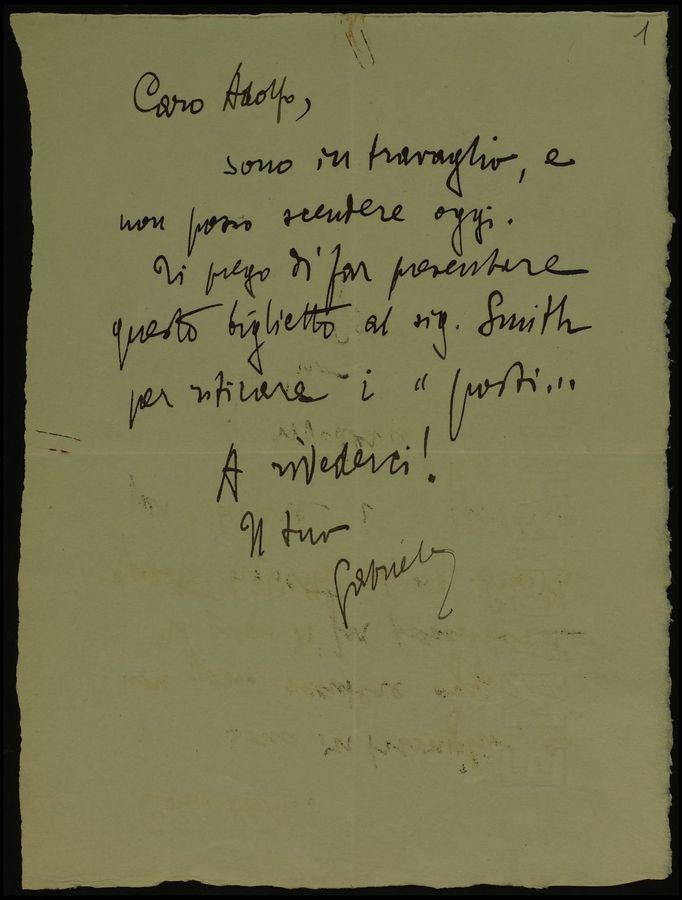 1
Caro Adolfo,
sono in travaglio, e
non posso scendere oggi.
Ti prego di far presentare
questo biglietto al sig. Smith
per ritirare i " posti...
A rivederci!
Il tuo
Gabriele